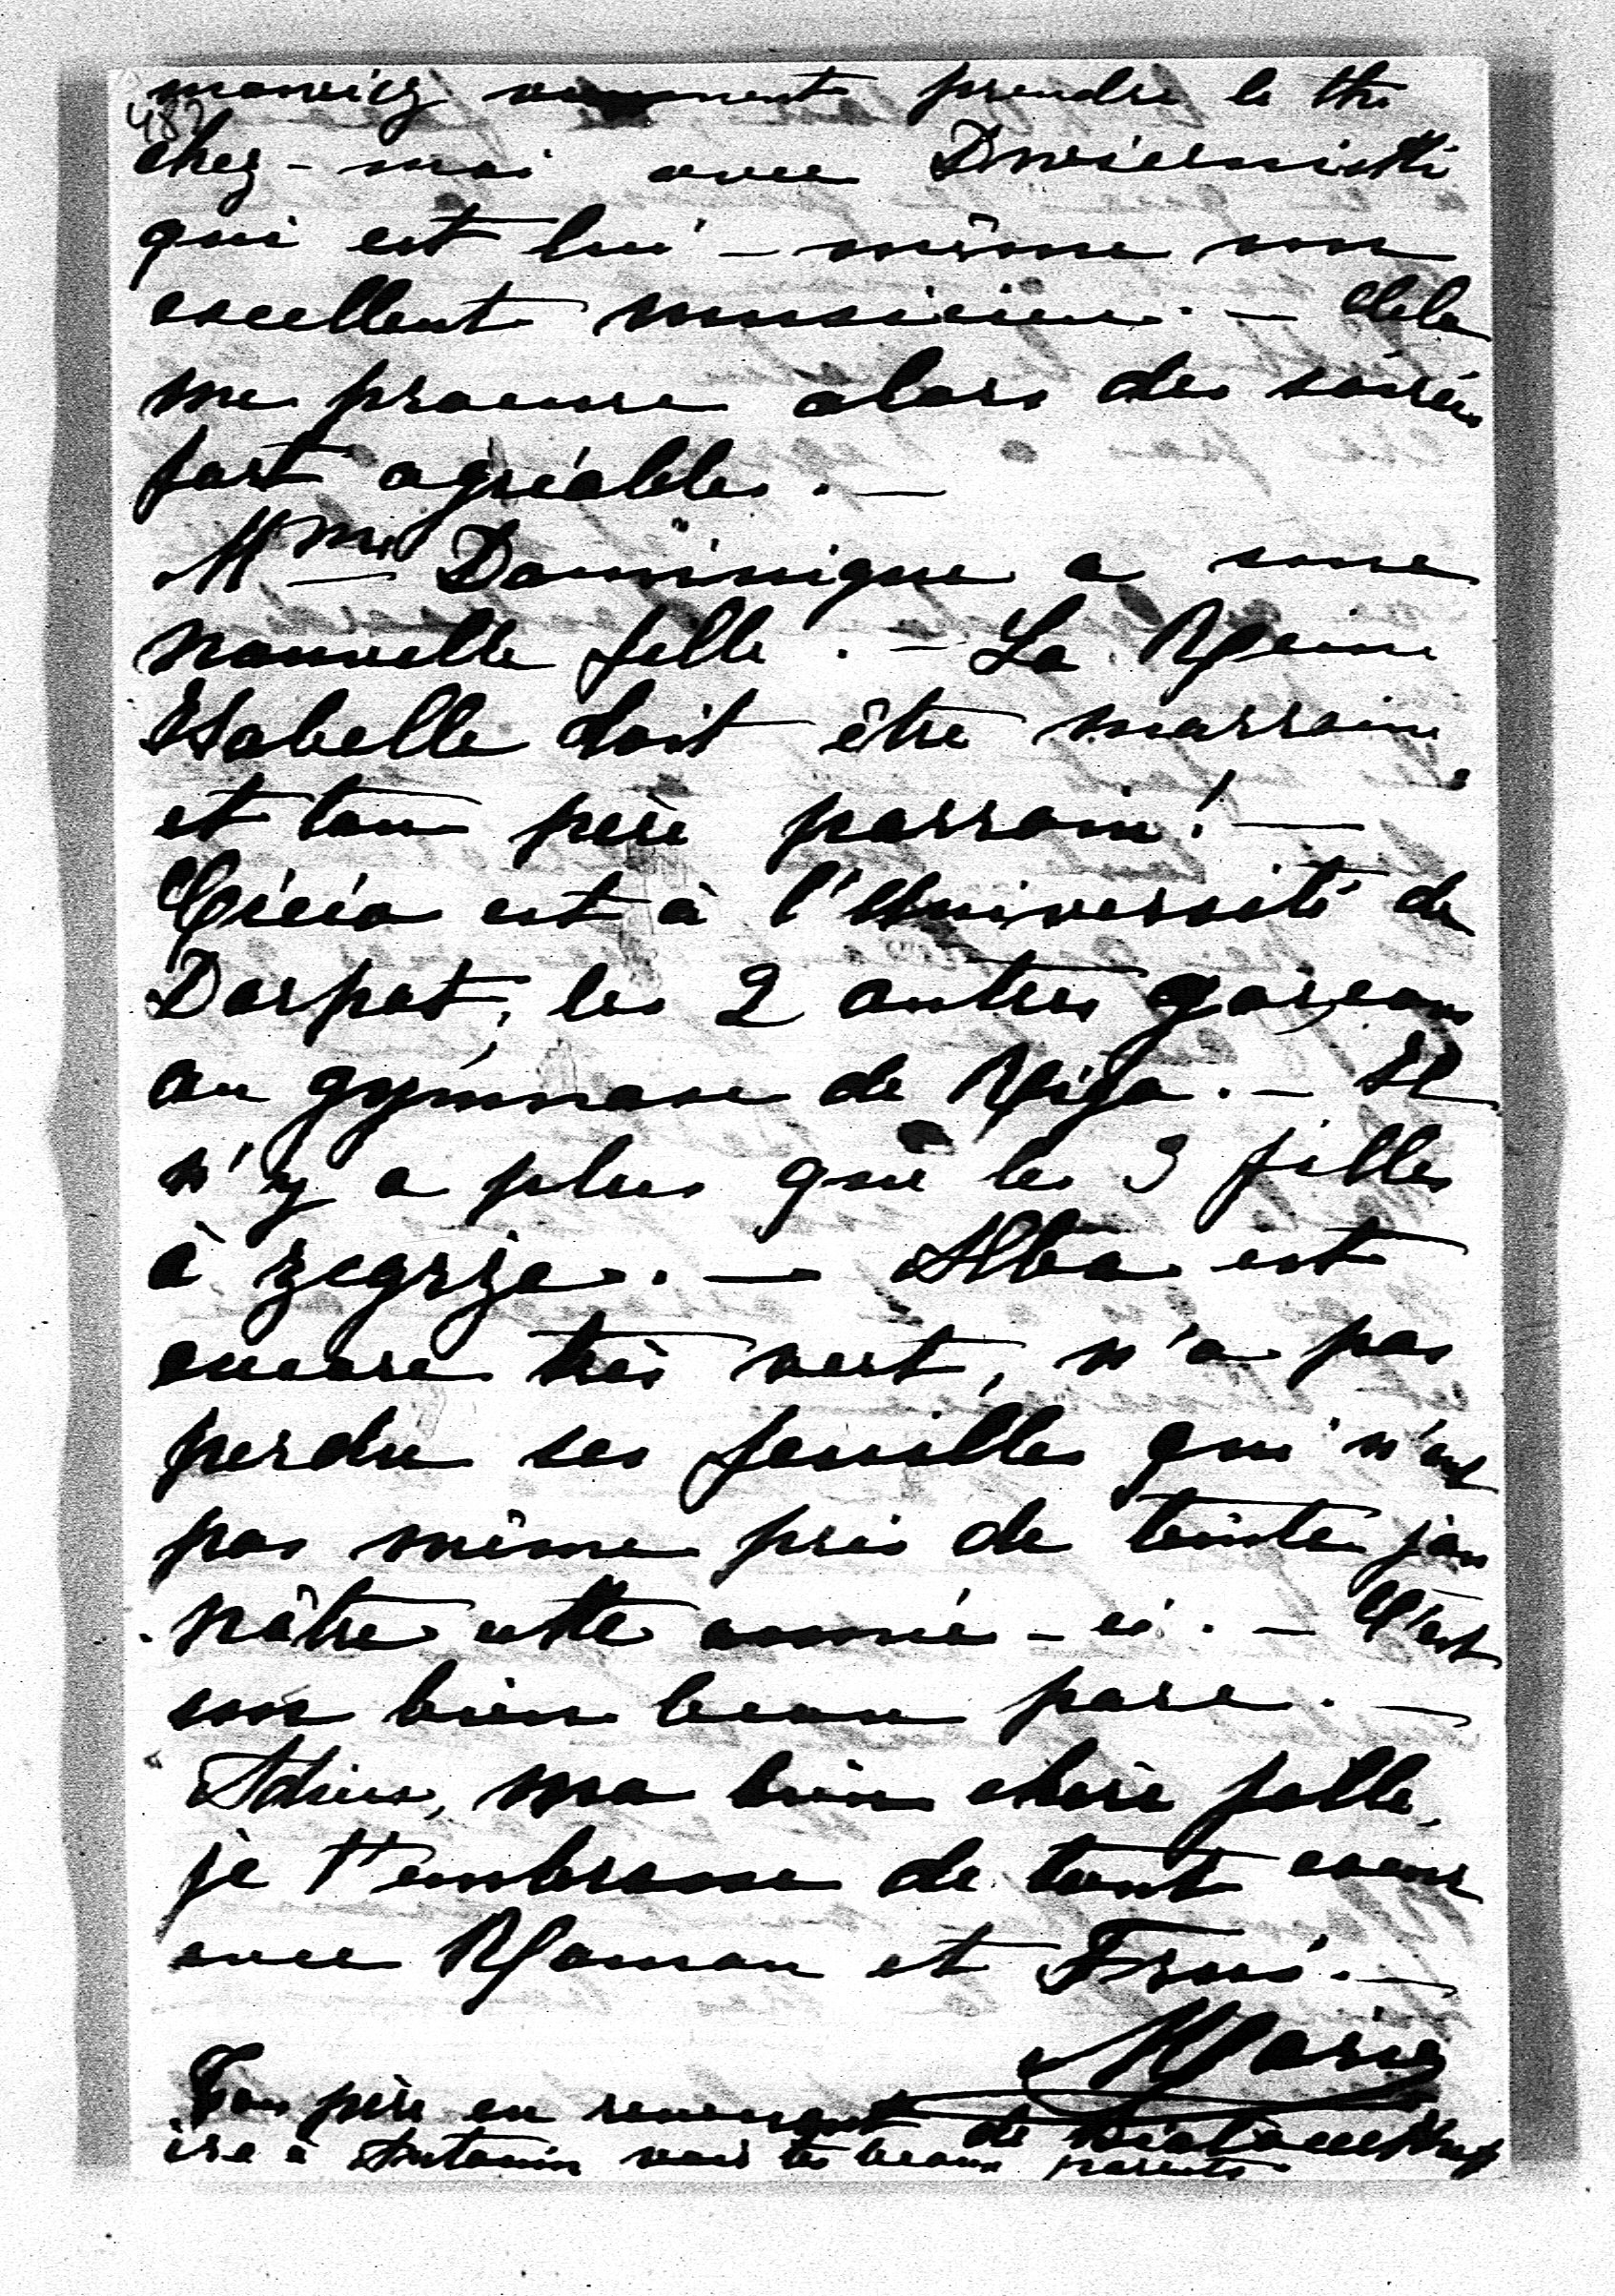 482
mowicz viennent prendre le thé
chez-moi avec Dwiernicki
qui est lui-même un
excellent musicien. — Cela
me procure alors des soirées
fort agréables. —
Mme Dominique a une
nouvelle fille. — La Reine
Isabelle doit être marraine
et ton père parrain! —
Gicio est à l'Université de
Dorpat, les 2 autres garçons
au gymnase de Riga. — Il
n'y a plus que les 3 filles
à Zegrze. — Alba est
encore très vert, n'a pas
perdu ses feuilles qui n'ont
pas même pris de teinte jau
nâtre cette année-ci. — C'est
un bien beau parc. —
Adieu, ma bien chère fille,
je t'embrasse de tout coeur
avec Roman et
Marie
Ton père en revenant de
ira à Antonin voir tes beaux parents